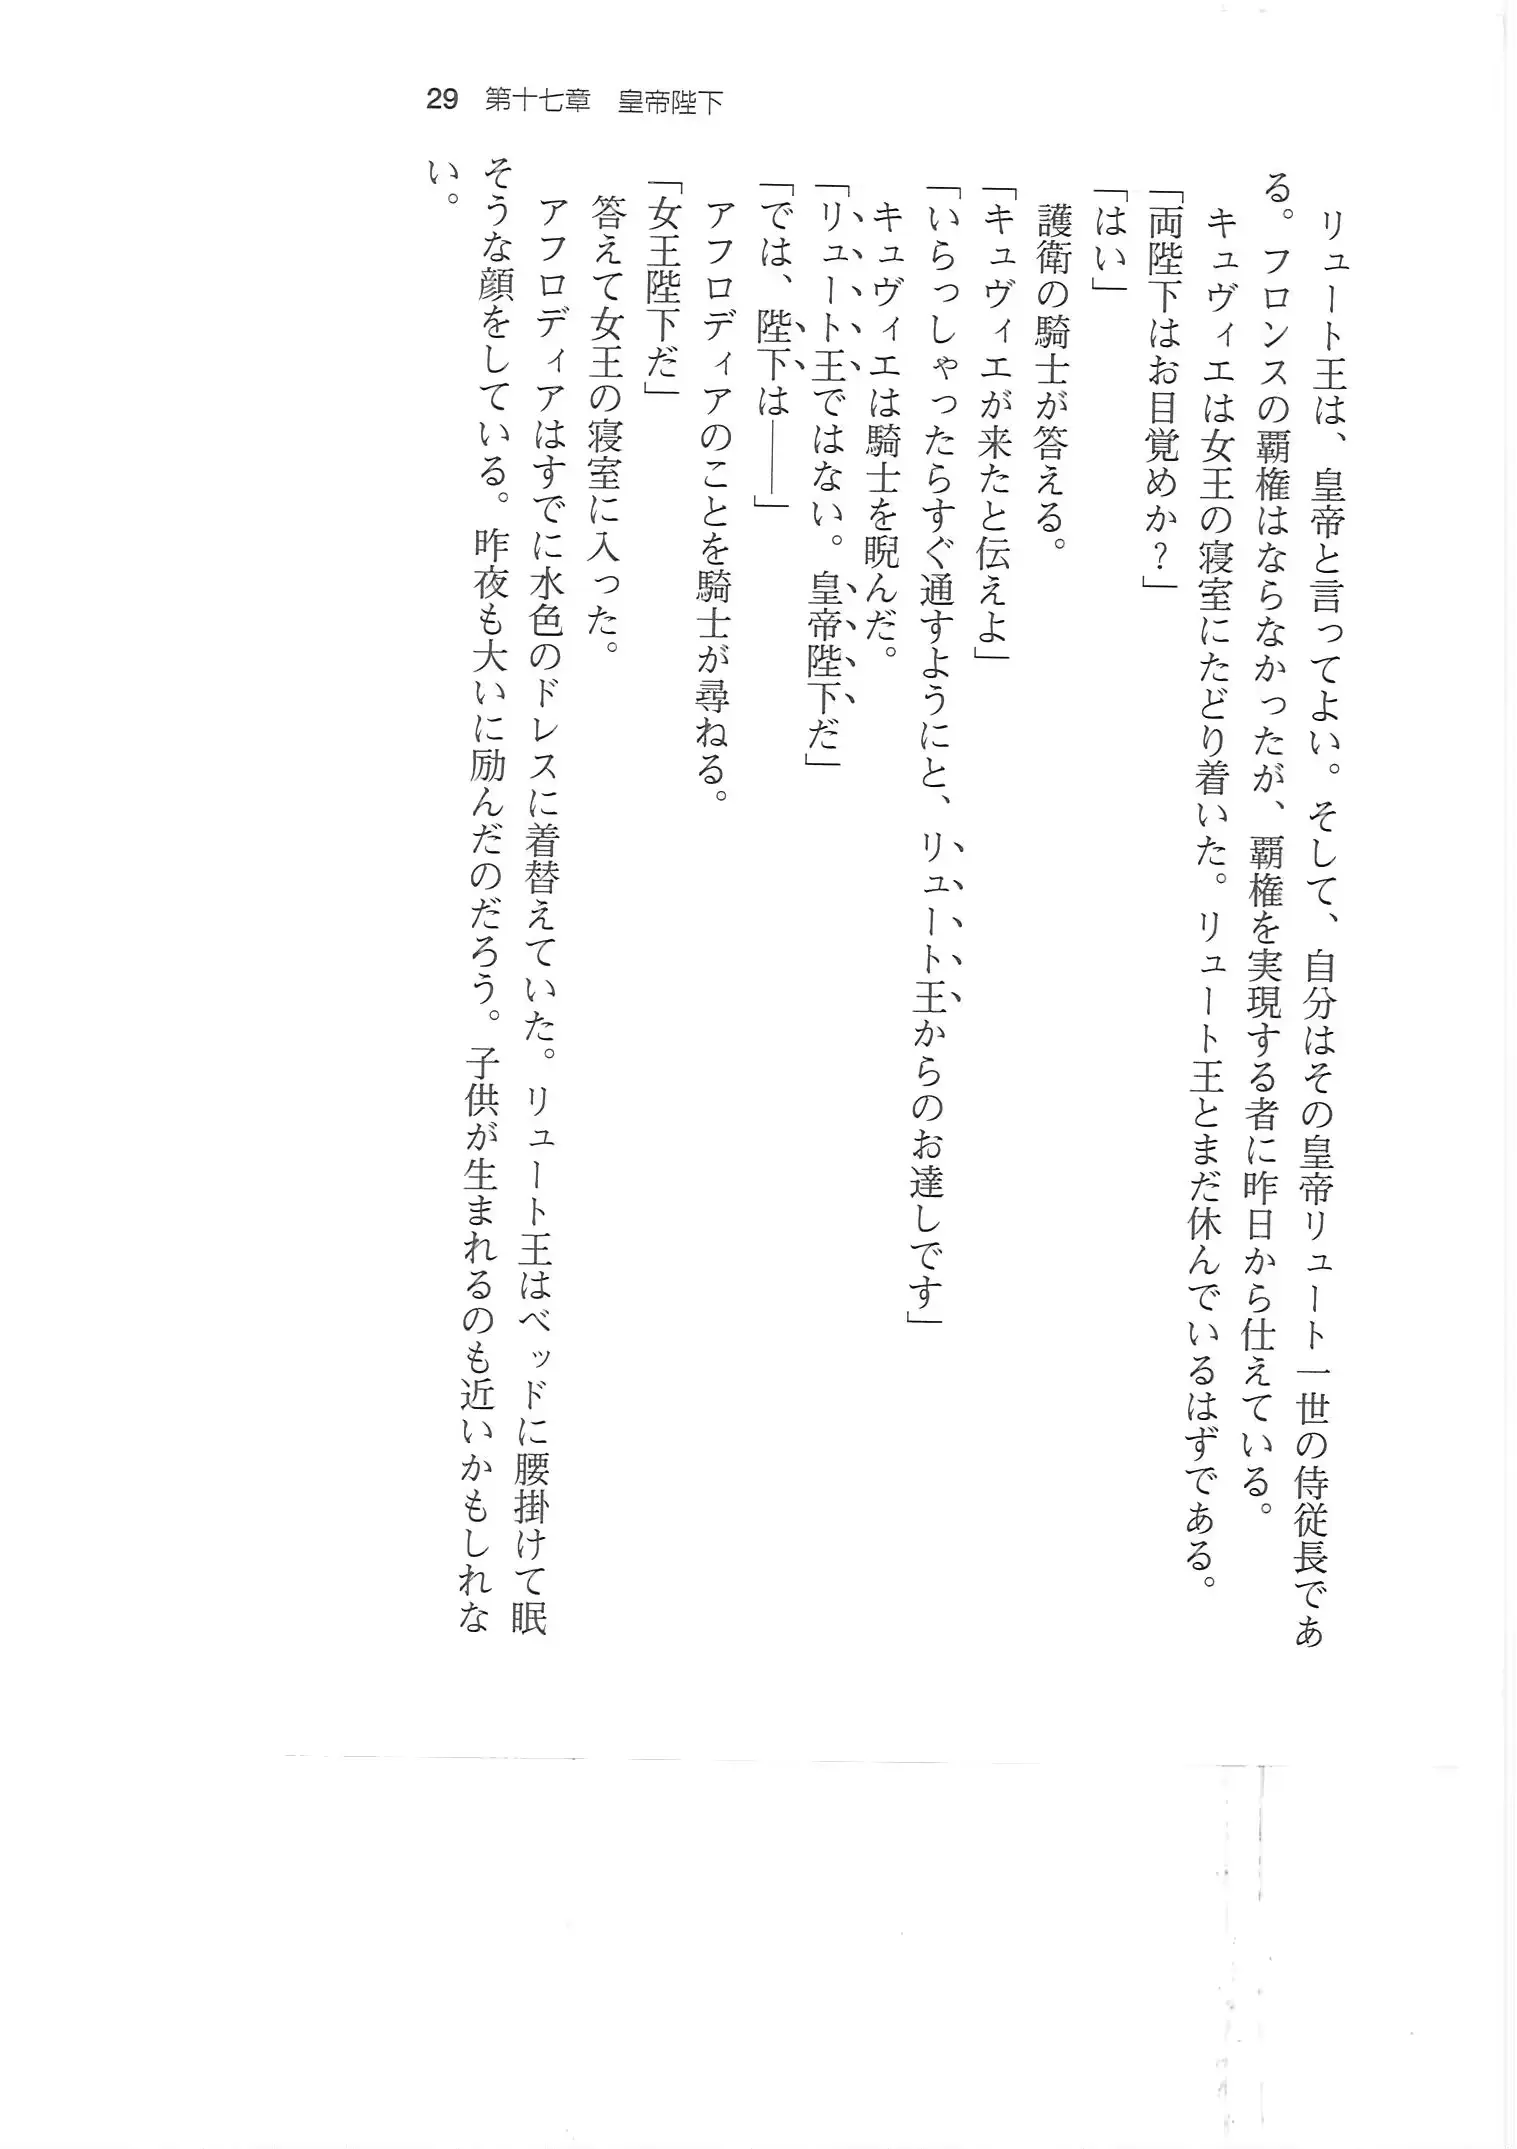 29 第十七章 皇帝陛下
　リュート王は、皇帝と言ってよい。そして、自分はその皇帝リュート一世の侍従長であ
る。フロンスの覇権はならなかったが、覇権を実現する者に昨日から仕えている。
　キュヴィエは女王の寝室にたどり着いた。リュート王とまだ休んでいるはずである。
「両陛下はお目覚めか？」
「はい」
　護衛の騎士が答える。
「キュヴィエが来たと伝えよ」
「いらっしゃったらすぐ通すようにと、リュート王からのお達しです」
　キュヴィエは騎士を睨んだ。
「リュート王ではない。皇帝陛下だ」
「では、陛下は――」
　アフロディアのことを騎士が尋ねる。
「女王陛下だ」
　答えて女王の寝室に入った。
　アフロディアはすでに水色のドレスに着替えていた。リュート王はベッドに腰掛けて眠
そうな顔をしている。昨夜も大いに励んだのだろう。子供が生まれるのも近いかもしれな
い。